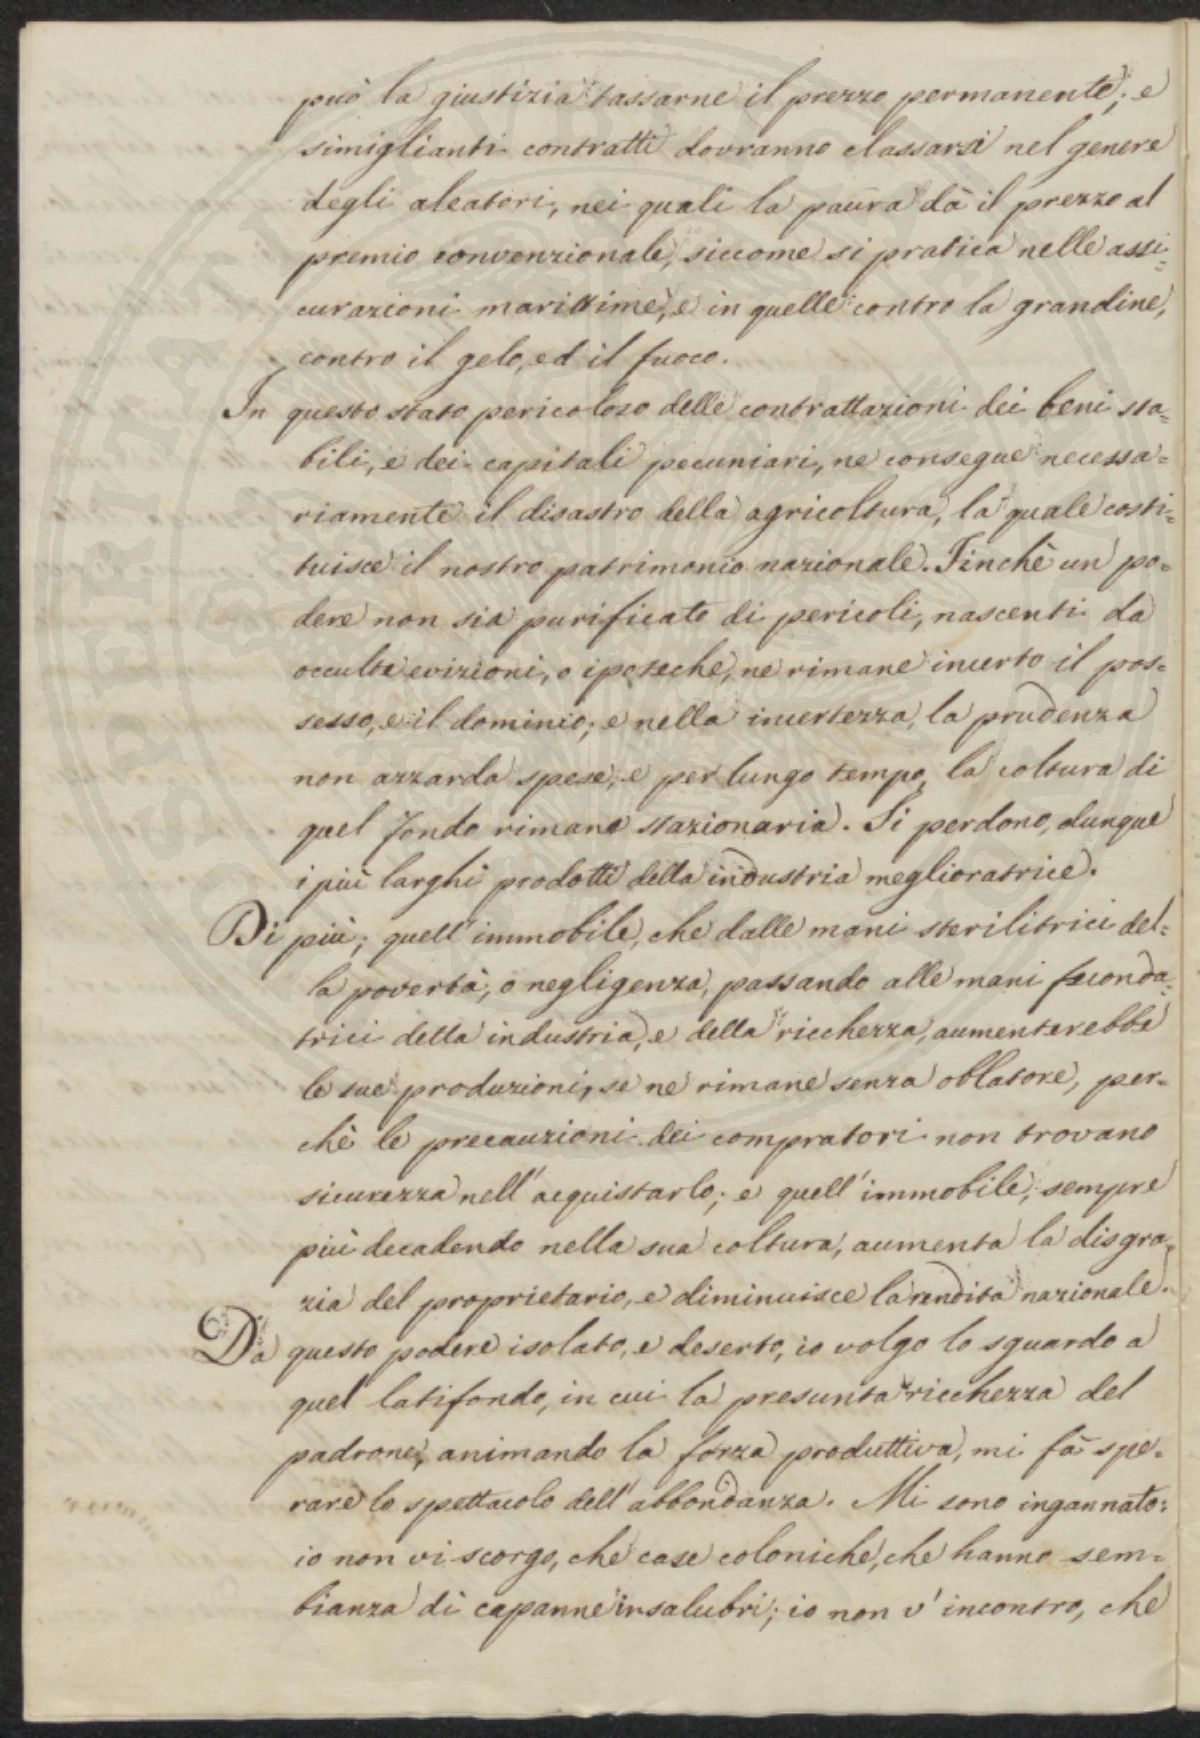 può la giustizia tassarne il prezzo permanente; e
simiglianti contratti dovranno classarsi nel genere
degli aleatori, nei quali la paura dà il prezzo al
premio convenzionale, siccome si pratica nelle assi-
curazioni marittime, e in quelle contro la grandine,
contro il gelo, ed il fuoco.
In questo stato pericoloso delle contrattazioni dei beni sta-
bili, e dei capitali pecuniari, ne consegue necessa-
riamente il disastro della agricoltura, la quale costi-
tuisce il nostro patrimonio nazionale. Finchè un po-
dere non sia purificato di pericoli, nascenti da
occulte evizioni, o ipoteche, ne rimane incerto il pos-
sesso, e il dominio; e nella incertezza, la prudenza
non azzarda spese, e per lungo tempo la coltura di
quel fondo rimane stazionaria. Si perdono, dunque
i più larghi prodotti della industria meglioratrice.
Di più; quell'immobile, che dalle mani sterilitrici del-
la povertà, o negligenza, passando alle mani feconda-
trici della industria, e della ricchezza, aumenterebbe
le sue produzioni, se ne rimane senza oblatore, per-
chè le precauzioni dei compratori non trovano
sicurezza nell'acquistarlo; e quell'immobile, sempre
più decadendo nella sua coltura, aumenta la disgra-
zia del proprietario, e diminuisce la rendita nazionale.
Da questo podere isolato, e deserto, io volgo lo sguardo a
quel latifondo, in cui la presunta ricchezza del
padrone, animando la forza produttiva, mi fà spe-
rare lo spettacolo dell'abbondanza. Mi sono ingannato:
io non vi scorgo, che case coloniche, che hanno sem-
bianza di capanne insalubri; io non v'incontro, che